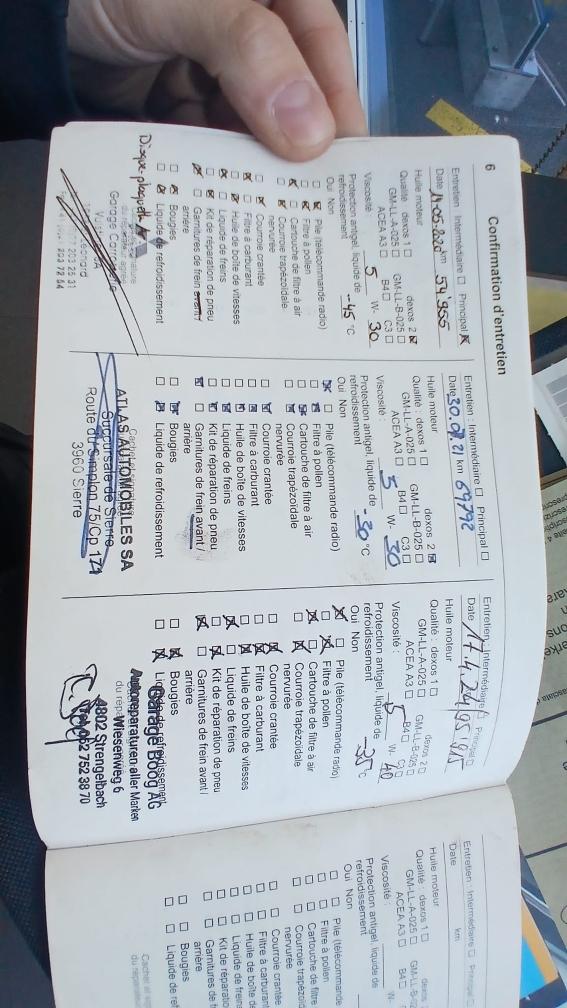 6
Confirmation d'entretien
Entretien : Intermédiaire Principal
Date 11-05-2020 km 54'955
Huile moteur
Qualité : dexos 1 dexos 2
GM-LL-A-025 GM-LL-B-025
ACEA A3 B4 C3
Viscosité : 5 W- 30
Protection antigel, liquide de
refroidissement -45 °C
Oui Non
Pile (télécommande radio)
Filtre à pollen
Cartouche de filtre à air
Courroie trapézoïdale
nervurée
Courroie crantée
Filtre à carburant
Huile de boîte de vitesses
Liquide de freins
Kit de réparation de pneu
Garnitures de frein avant/
arrière
Bougies
Liquide de refroidissement
Disque-plaquette
Entretien : Intermédiaire Principal
Date 30.08.21 km 69792
Huile moteur
Qualité : dexos 1 dexos 2
GM-LL-A-025 GM-LL-B-025
ACEA A3 B4 C3
Viscosité : 5 W- 30
Protection antigel, liquide de
refroidissement 30 °C
Oui Non
Pile (télécommande radio)
Filtre à pollen
Cartouche de filtre à air
Courroie trapézoïdale
nervurée
Courroie crantée
Filtre à carburant
Huile de boîte de vitesses
Liquide de freins
Kit de réparation de pneu
Garnitures de frein avant/
arrière
Bougies
Liquide de refroidissement
ATLAS AUTOMOBILES SA
Succursale de Sierre
Route du Simplon 75/Cp 174
3960 Sierre
Entretien : Intermédiaire Principal
Date 17.4.24 95'915
Huile moteur
Qualité : dexos 1 dexos 2
GM-LL-A-025 GM-LL-B-025
ACEA A3 B4 C3
Viscosité : 5 W- 40
Protection antigel, liquide de
refroidissement -35 °C
Oui Non
Pile (télécommande radio)
Filtre à pollen
Cartouche de filtre à air
Courroie trapézoïdale
nervurée
Courroie crantée
Filtre à carburant
Huile de boîte de vitesses
Liquide de freins
Kit de réparation de pneu
Garnitures de frein avant/
arrière
Bougies
Liquide de refroidissement
Garage Boog AG
Autoreparaturen aller Marken
Wiesenweg 6
4802 Strengelbach
Tel. 062 752 38 70
Entretien : Intermédiaire
Date km
Huile moteur
Qualité : dexos 1
GM-LL-A-025
ACEA A3 B4
Viscosité :
Protection antigel, liquide de
refroidissement
Oui Non
Pile (télécommande
Filtre à pollen
Cartouche de filtre
Courroie trapézoï
nervurée
Courroie crantée
Filtre à carburant
Huile de boîte
Liquide de freins
Kit de réparatio
Garnitures de f
arrière
Bougies
Liquide de ref